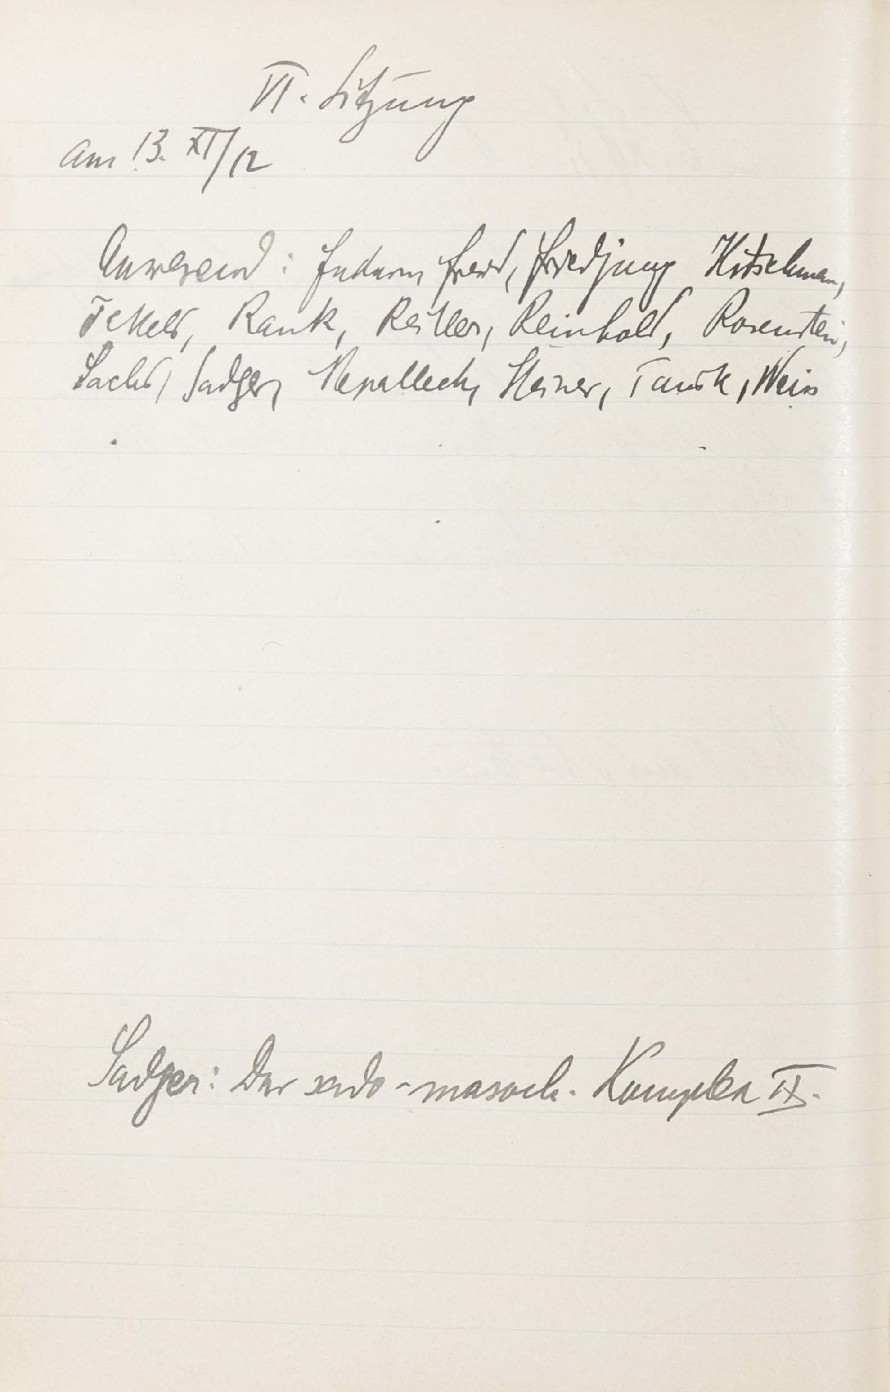 VI. Sitzung
am 13. XI/12
Anwesend: Federn, Freud, Friedjung Hitschman,
Jekels, Rank, Reitler, Reinhold, Rosenstein,
Sachs, Sadger, Steiner, Tausk, Weiss
Sadger: Der sado-masoch. Komplex II.